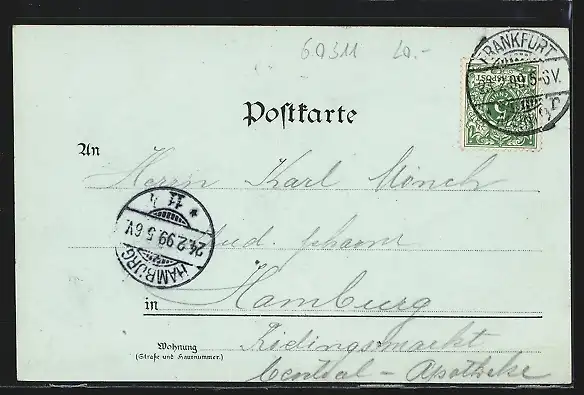 60311 20.-
FRANKFURT
2.99.5-6V.
Postkarte
An
Herrn Karl Mönch
stud. pharm
HAMBURG
24.2.99.5-6V.
* 11 h
in Hamburg
Wohnung
(Straße und Hausnummer.)
Central-Apotheke